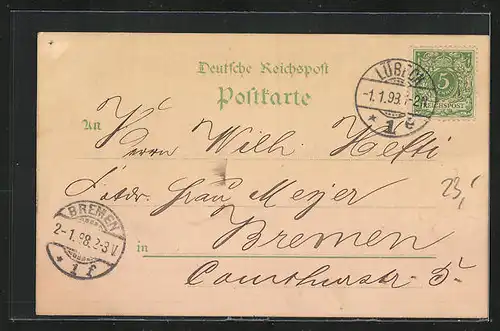 Deutsche Reichspost
Postkarte
LÜBECK
-1.1.98.1-2
* 1 e
5
REICHSPOST
An
Herrn Wilh. Hefti
Frau Meyer
23,
BREMEN
2-1.98.2-3V
* 1 f
in Bremen
5